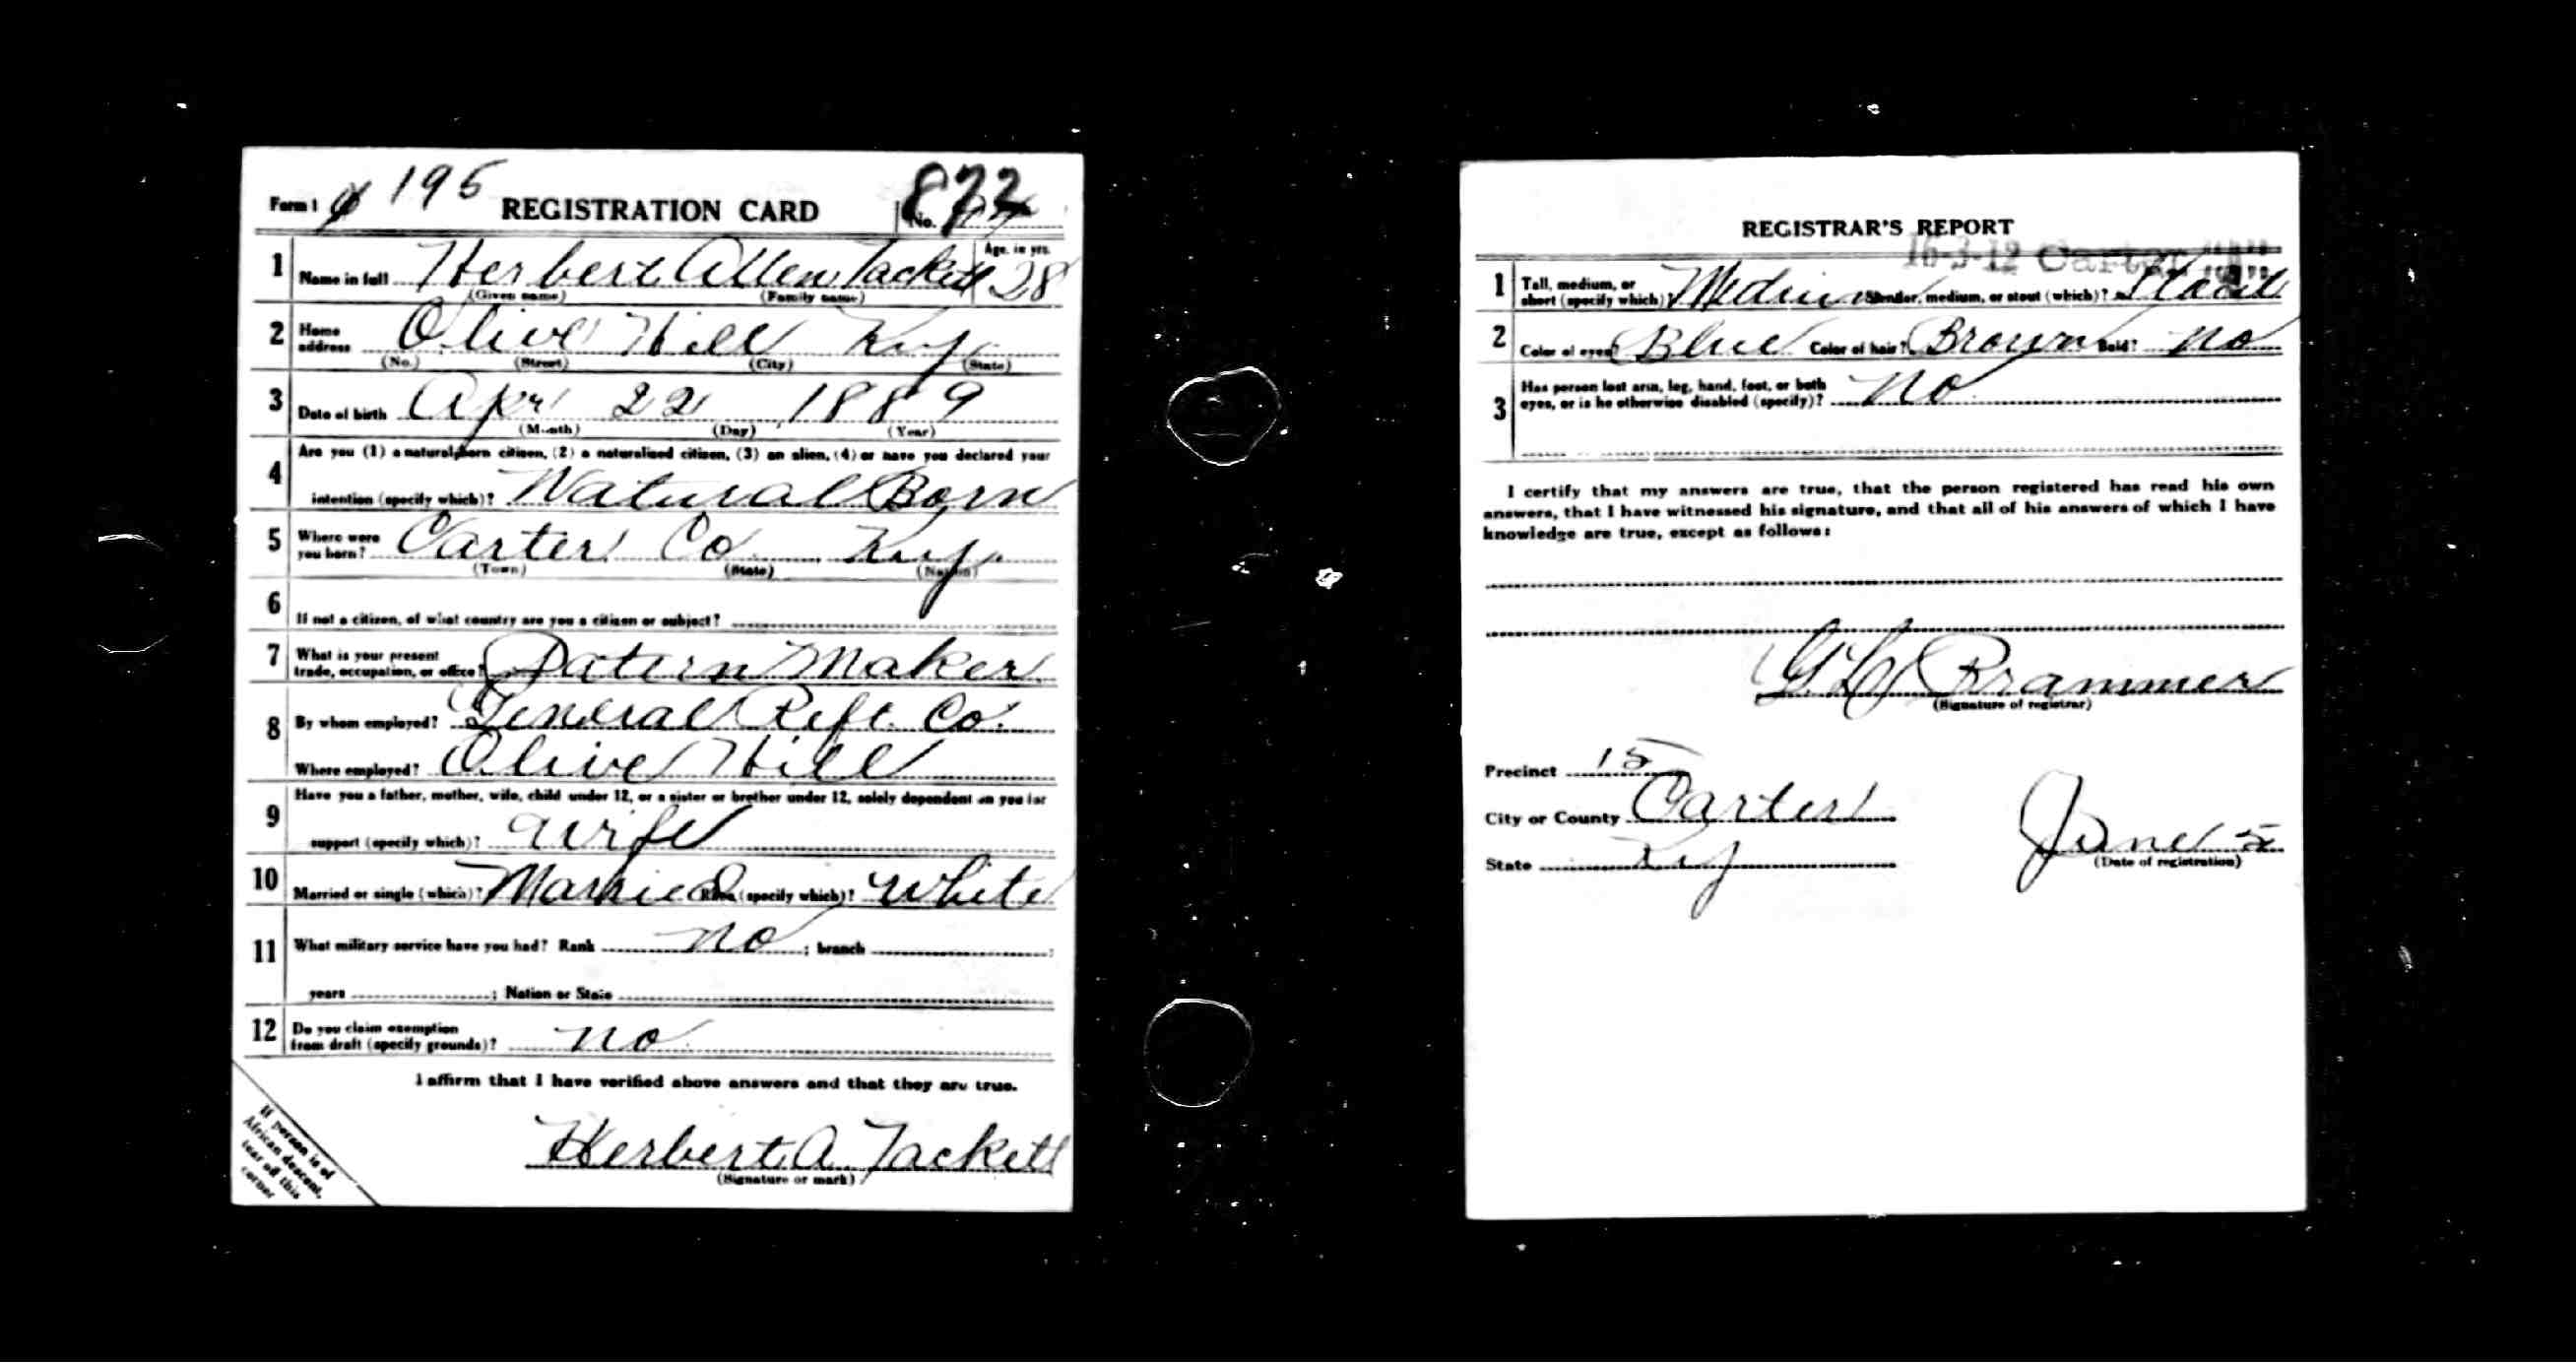 Form 1 195 REGISTRATION CARD No. 872
1 Name in full Herbert Allen Tackett Age, in yrs. 28
(Given name) (Family name)
2 Home address Olive Hill Ky
(No.) (Street) (City) (State)
3 Date of birth Apr 22 1889
(Month) (Day) (Year)
4 Are you (1) a natural born citizen, (2) a naturalized citizen, (3) an alien, (4) or have you declared your
intention (specify which)? Natural Born
5 Where were you born? Carter Co. Ky.
(Town) (State) (Nation)
6 If not a citizen, of what country are you a citizen or subject?
7 What is your present trade, occupation, or office? Patern Maker
8 By whom employed? General Reft. Co.
Where employed? Olive Hill
9 Have you a father, mother, wife, child under 12, or a sister or brother under 12, solely dependent on you for
support (specify which)? Wife
10 Married or single (which)? Married Race (specify which)? White
11 What military service have you had? Rank no ; branch ;
years ; Nation or State
12 Do you claim exemption from draft (specify grounds)? no
I affirm that I have verified above answers and that they are true.
Herbert A. Tackett
(Signature or mark)
If person is of
African descent,
tear off this
corner
REGISTRAR'S REPORT
16-3-12 Carter
1 Tall, medium, or short (specify which)? Medium Slender, medium, or stout (which)? Stout
2 Color of eyes? Blue Color of hair? Brown Bald? no
3 Has person lost arm, leg, hand, foot, or both
eyes, or is he otherwise disabled (specify)? no
I certify that my answers are true, that the person registered has read his own
answers, that I have witnessed his signature, and that all of his answers of which I have
knowledge are true, except as follows:
Brammer
(Signature of registrar)
Precinct 15
City or County Carter
State Ky
June 5
(Date of registration)